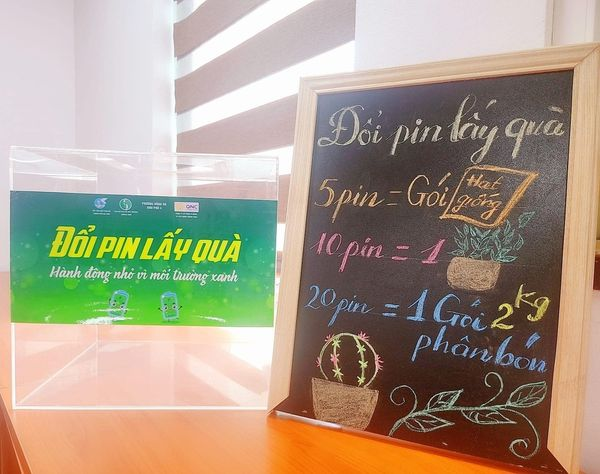 ĐỔI PIN LẤY QUÀ
Hành động nhỏ vì môi trường xanh
QNC
Đổi pin lấy quà
5 pin = Gói Hạt giống
10 pin = 1
20 pin = 1 Gói 2kg
phân bón